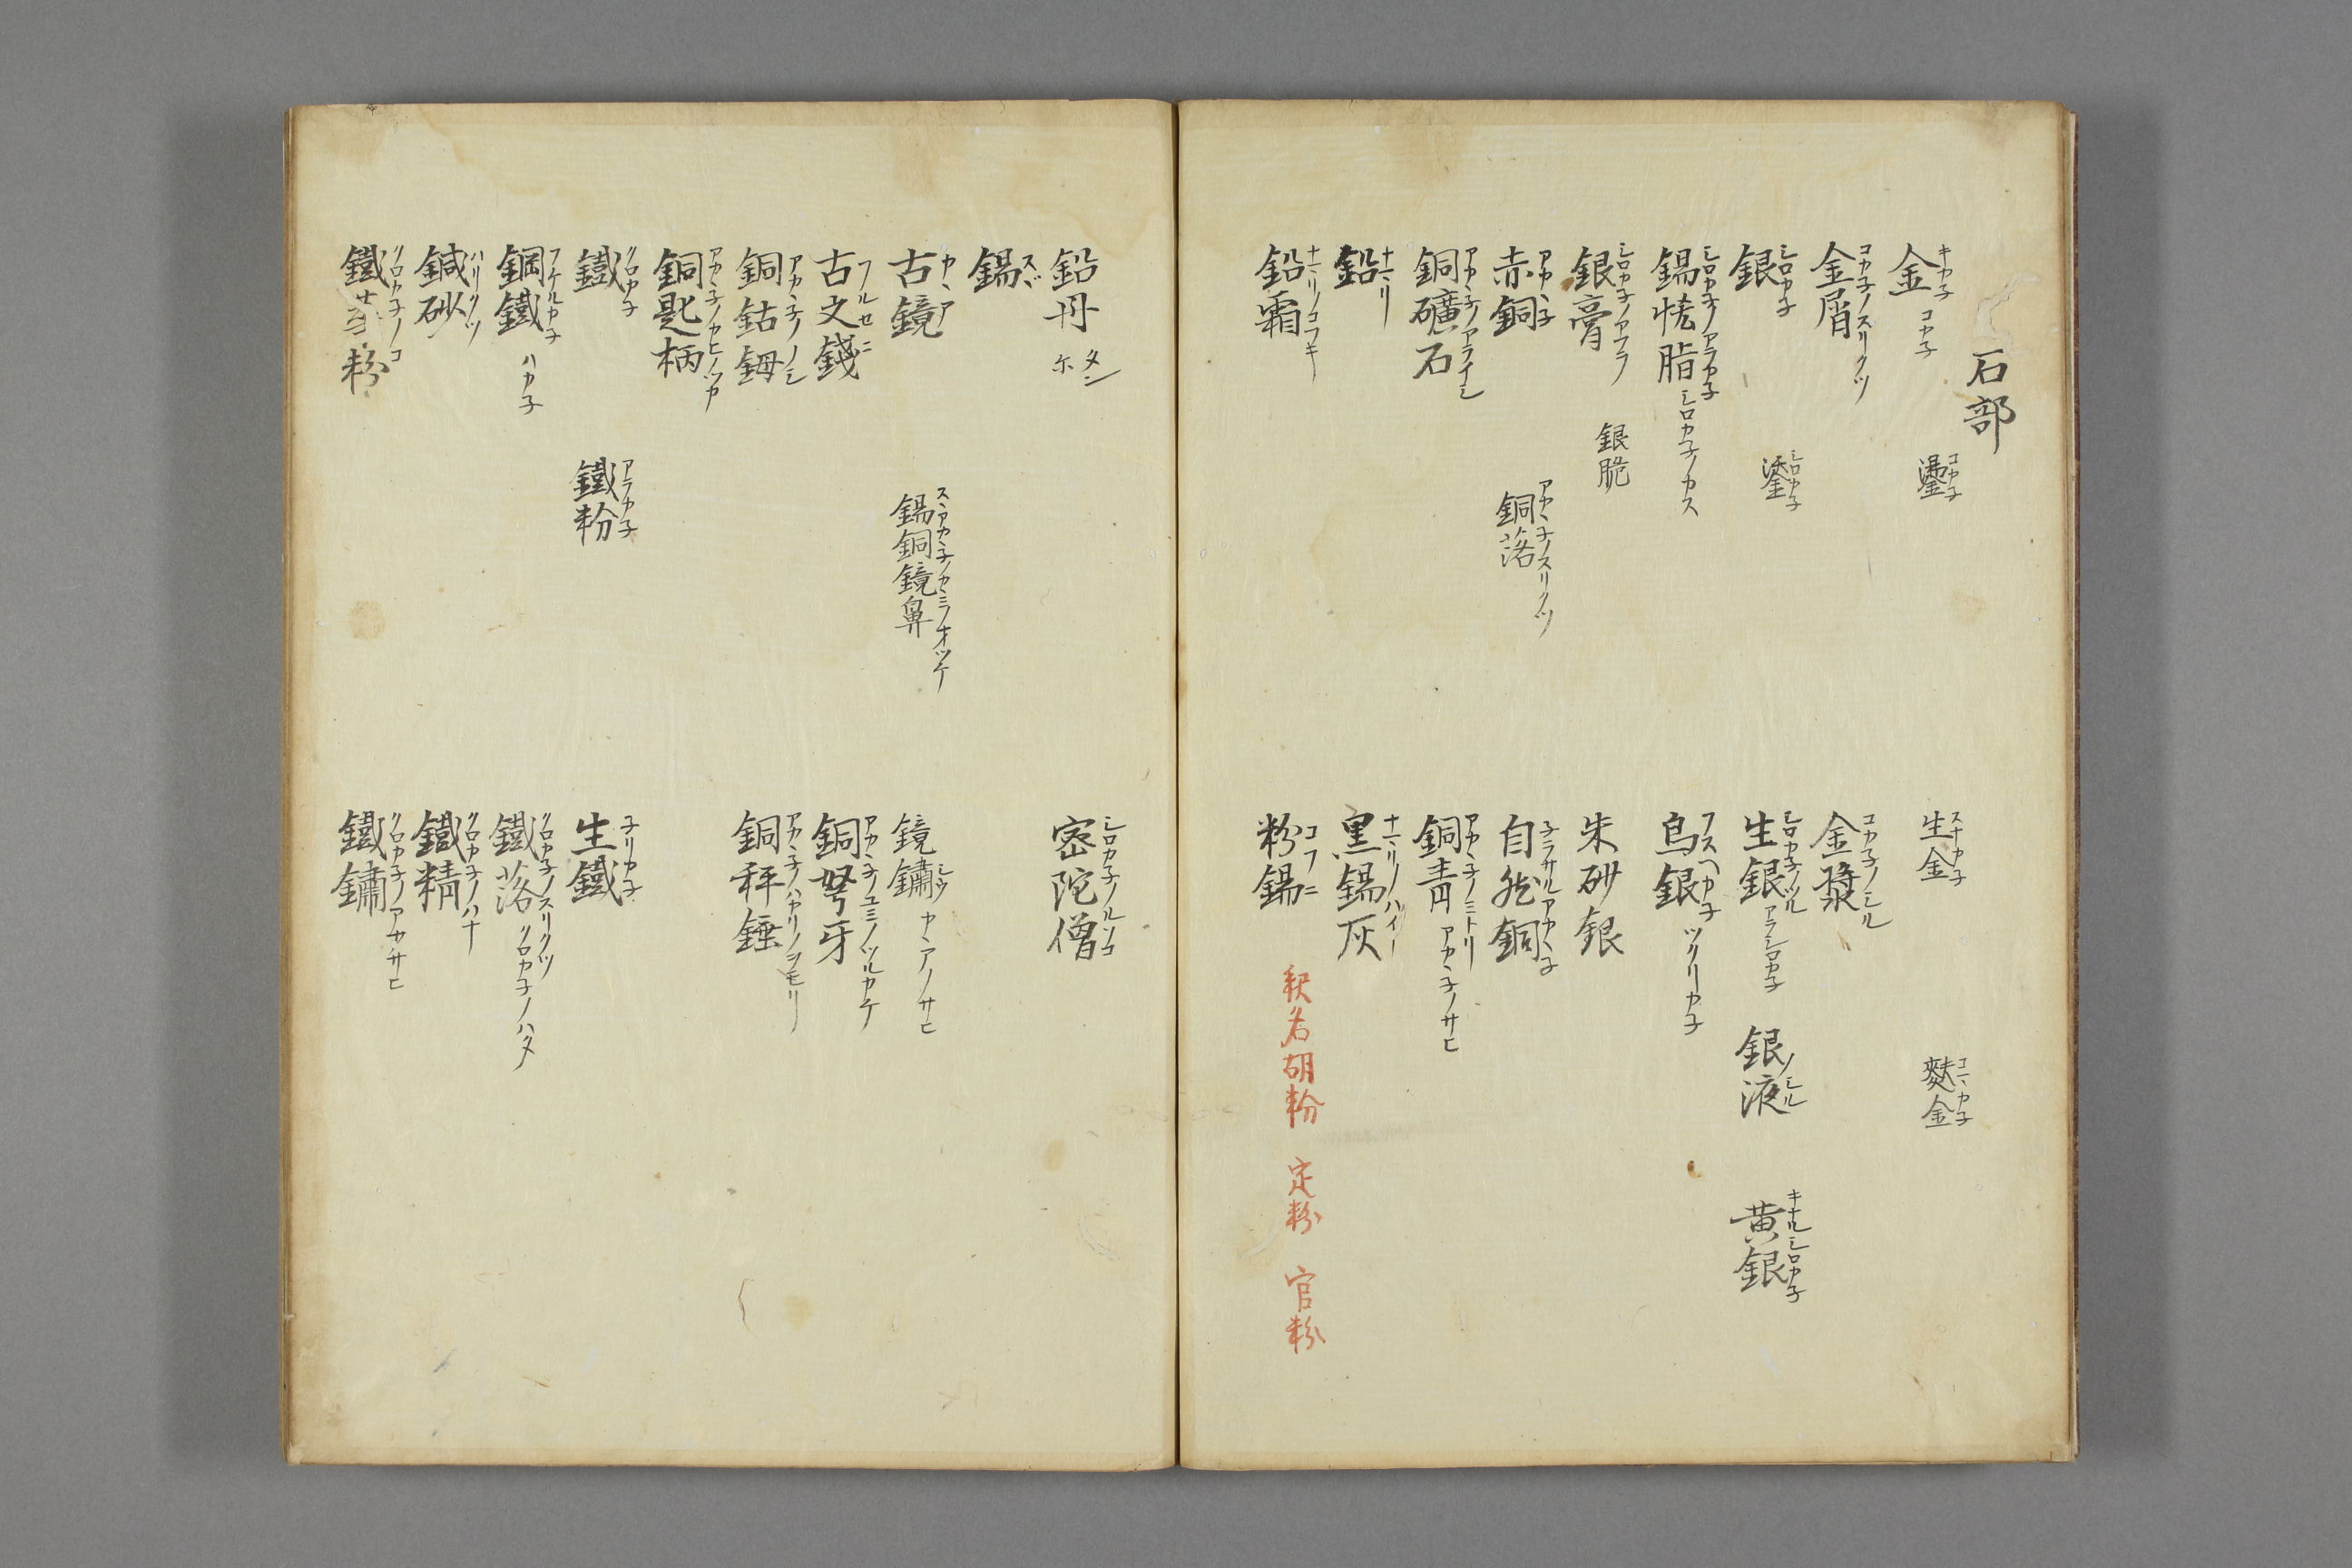 石部
金 キカ子 コカ子
鐆 コカ子
生金 スナカ子
麩金 コニヽカ子
金屑 コカ子ノスリクツ
金漿 コカ子ノシル
銀 シロカ子
シロカ子
生銀 シロカ子ノツル アラシロカ子
銀液 ノシル
黄銀 キナルシロカ子
錫恡脂 シロカ子ノアラカ子 シロカ子ノカス
烏銀 フスヘカ子 ツクリカ子
銀膏 シロカ子ノアフラ
銀脆
朱砂銀
赤銅 アカヽ子
銅落 アカヽ子ノスリクツ
自然銅 子ラサルアカヽ子
銅礦石 アカヽ子ノアライシ
銅青 アカヽ子ノミトリ アカヽ子ノサヒ
鉛 ナマリ
黒錫灰 ナマリノハイ
鉛霜 ナマリノコフキ
粉錫 コフニ
釈名胡粉 定粉 官粉
鉛丹 タン
密陀僧 シロカ子ノルツコ
錫 スヾ
古鏡 カヽア
錫銅鏡鼻 スヽアカヽ子ノカヽミノオツケ
鏡鏽 シウ カヽアノサヒ
古文錢 フルセニ
銅弩牙 アカヽ子ノユミノツルカケ
銅鈷鉧 アカヽ子ノノシ
銅秤錘 アカヽ子ノハカリノヲモリ
銅匙柄 アカヽ子ノカヒノツカ
鐵 クロカ子
鐵粉 アラカ子
生鐵 子リカ子
鋼鐵 フケルカ子 ハカ子
鐵落 クロカ子ノスリクツ クロカ子ノハタ
鍼砂 ハリクツ
鐵精 クロカ子ノハナ
鐵華粉 クロカ子ノコ
鐵鏽 クロカ子ノアカサヒ